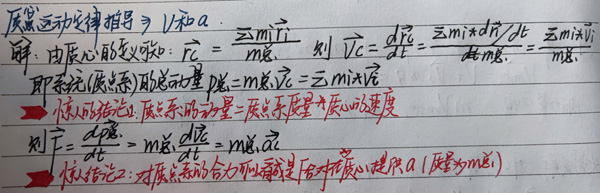 质心运动定律推导 → V和a.
解: 由质心的定义式知: r⃗c = Σmi r⃗i / m总. 则 V⃗c = dr⃗c/dt = Σmi*dr⃗i/dt / m总. = Σmi*v⃗i / m总.
即系统(质点系)的总动量P总=m总.V⃗c=Σmi*v⃗i
惊人的结论1: 质点系的动量=质点系质量*质心的速度
则F⃗ = dP总/dt = m总.dv⃗c/dt = m总.a⃗c
惊人结论2: 对质点系的合力可以看成是F合对质心提供a (质量为m总)